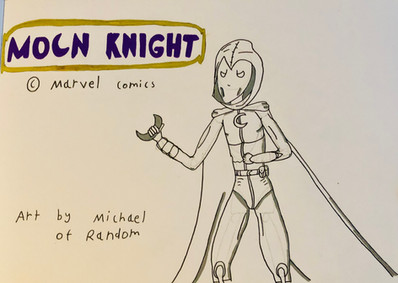 MOCN KNIGHT
© Marvel comics
Art by Michael
of Random